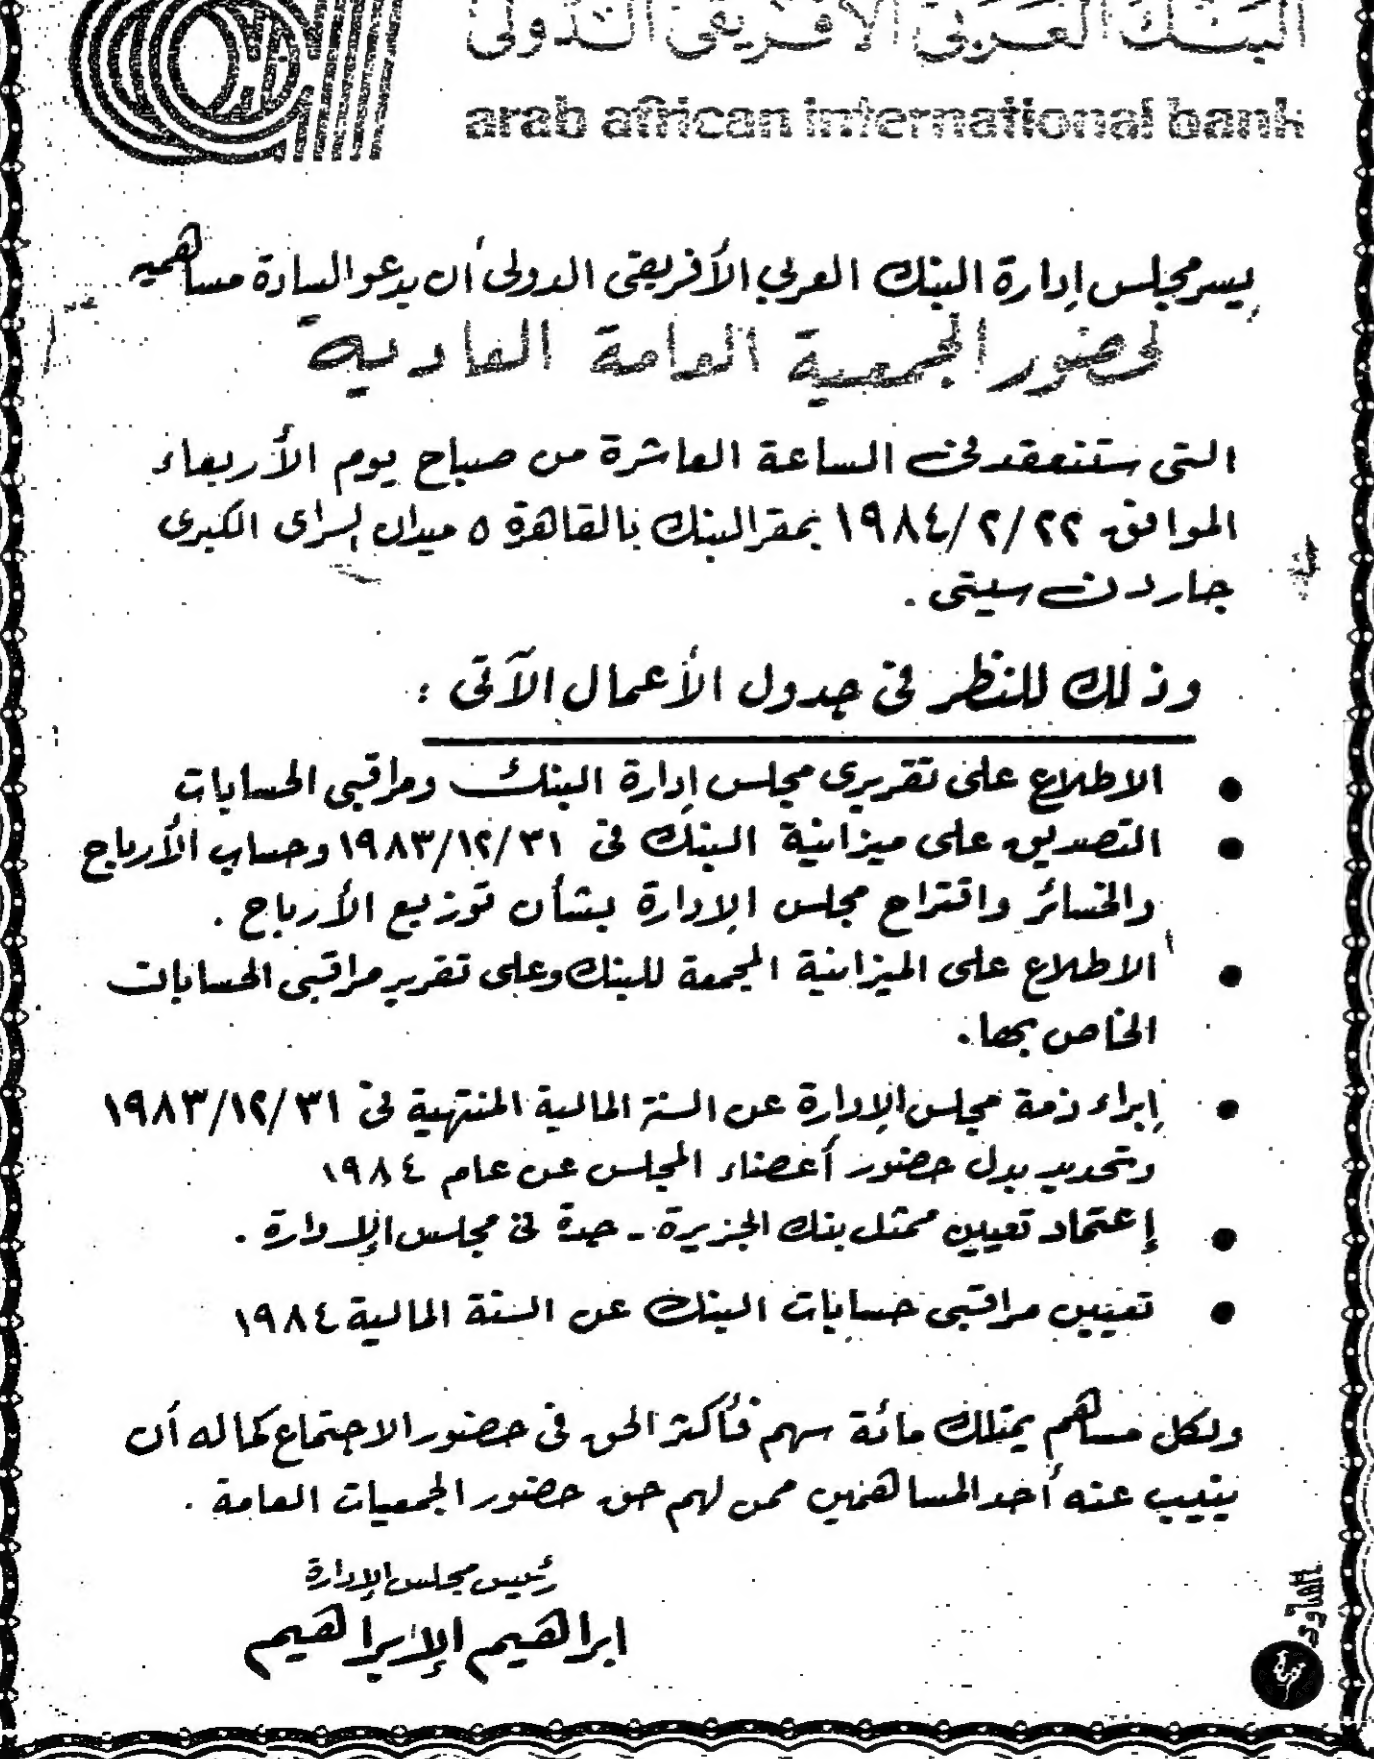 البنك العربى الأفريقى الدولى
arab african international bank
يسر مجلس إدارة البنك العربي الأفريقى الدولى أن يدعو السادة مساهميه
لحضور الجمعية العامة العادية
التى ستنعقد فى الساعة العاشرة من صباح يوم الأربعاء
الموافق ٢٢/٢/١٩٨٤ بمقر البنك بالقاهرة ٥ ميدان السراى الكبرى
جاردن سيتى .
وذلك للنظر فى جدول الأعمال الآتى :
• الاطلاع على تقريرى مجلس إدارة البنك ومراقبى الحسابات
• التصديق على ميزانية البنك فى ٣١/١٢/١٩٨٣ وحساب الأرباح
والخسائر واقتراح مجلس الإدارة بشأن توزيع الأرباح .
• الاطلاع على الميزانية المجمعة للبنك وعلى تقرير مراقبى الحسابات
الخاص بها .
• إبراء ذمة مجلس الإدارة عن السنة المالية المنتهية فى ٣١/١٢/١٩٨٣
وتحديد بدل حضور أعضاء المجلس عن عام ١٩٨٤
• إعتماد تعيين ممثل بنك الجزيرة - جدة فى مجلس الإدارة .
• تعيين مراقبى حسابات البنك عن السنة المالية ١٩٨٤
ولكل مساهم يمتلك مائة سهم فأكثر الحق فى حضور الاجتماع كما له أن
ينيب عنه أحد المساهمين ممن لهم حق حضور الجمعيات العامة .
رئيس مجلس الإدارة
ابراهيم الإبراهيم